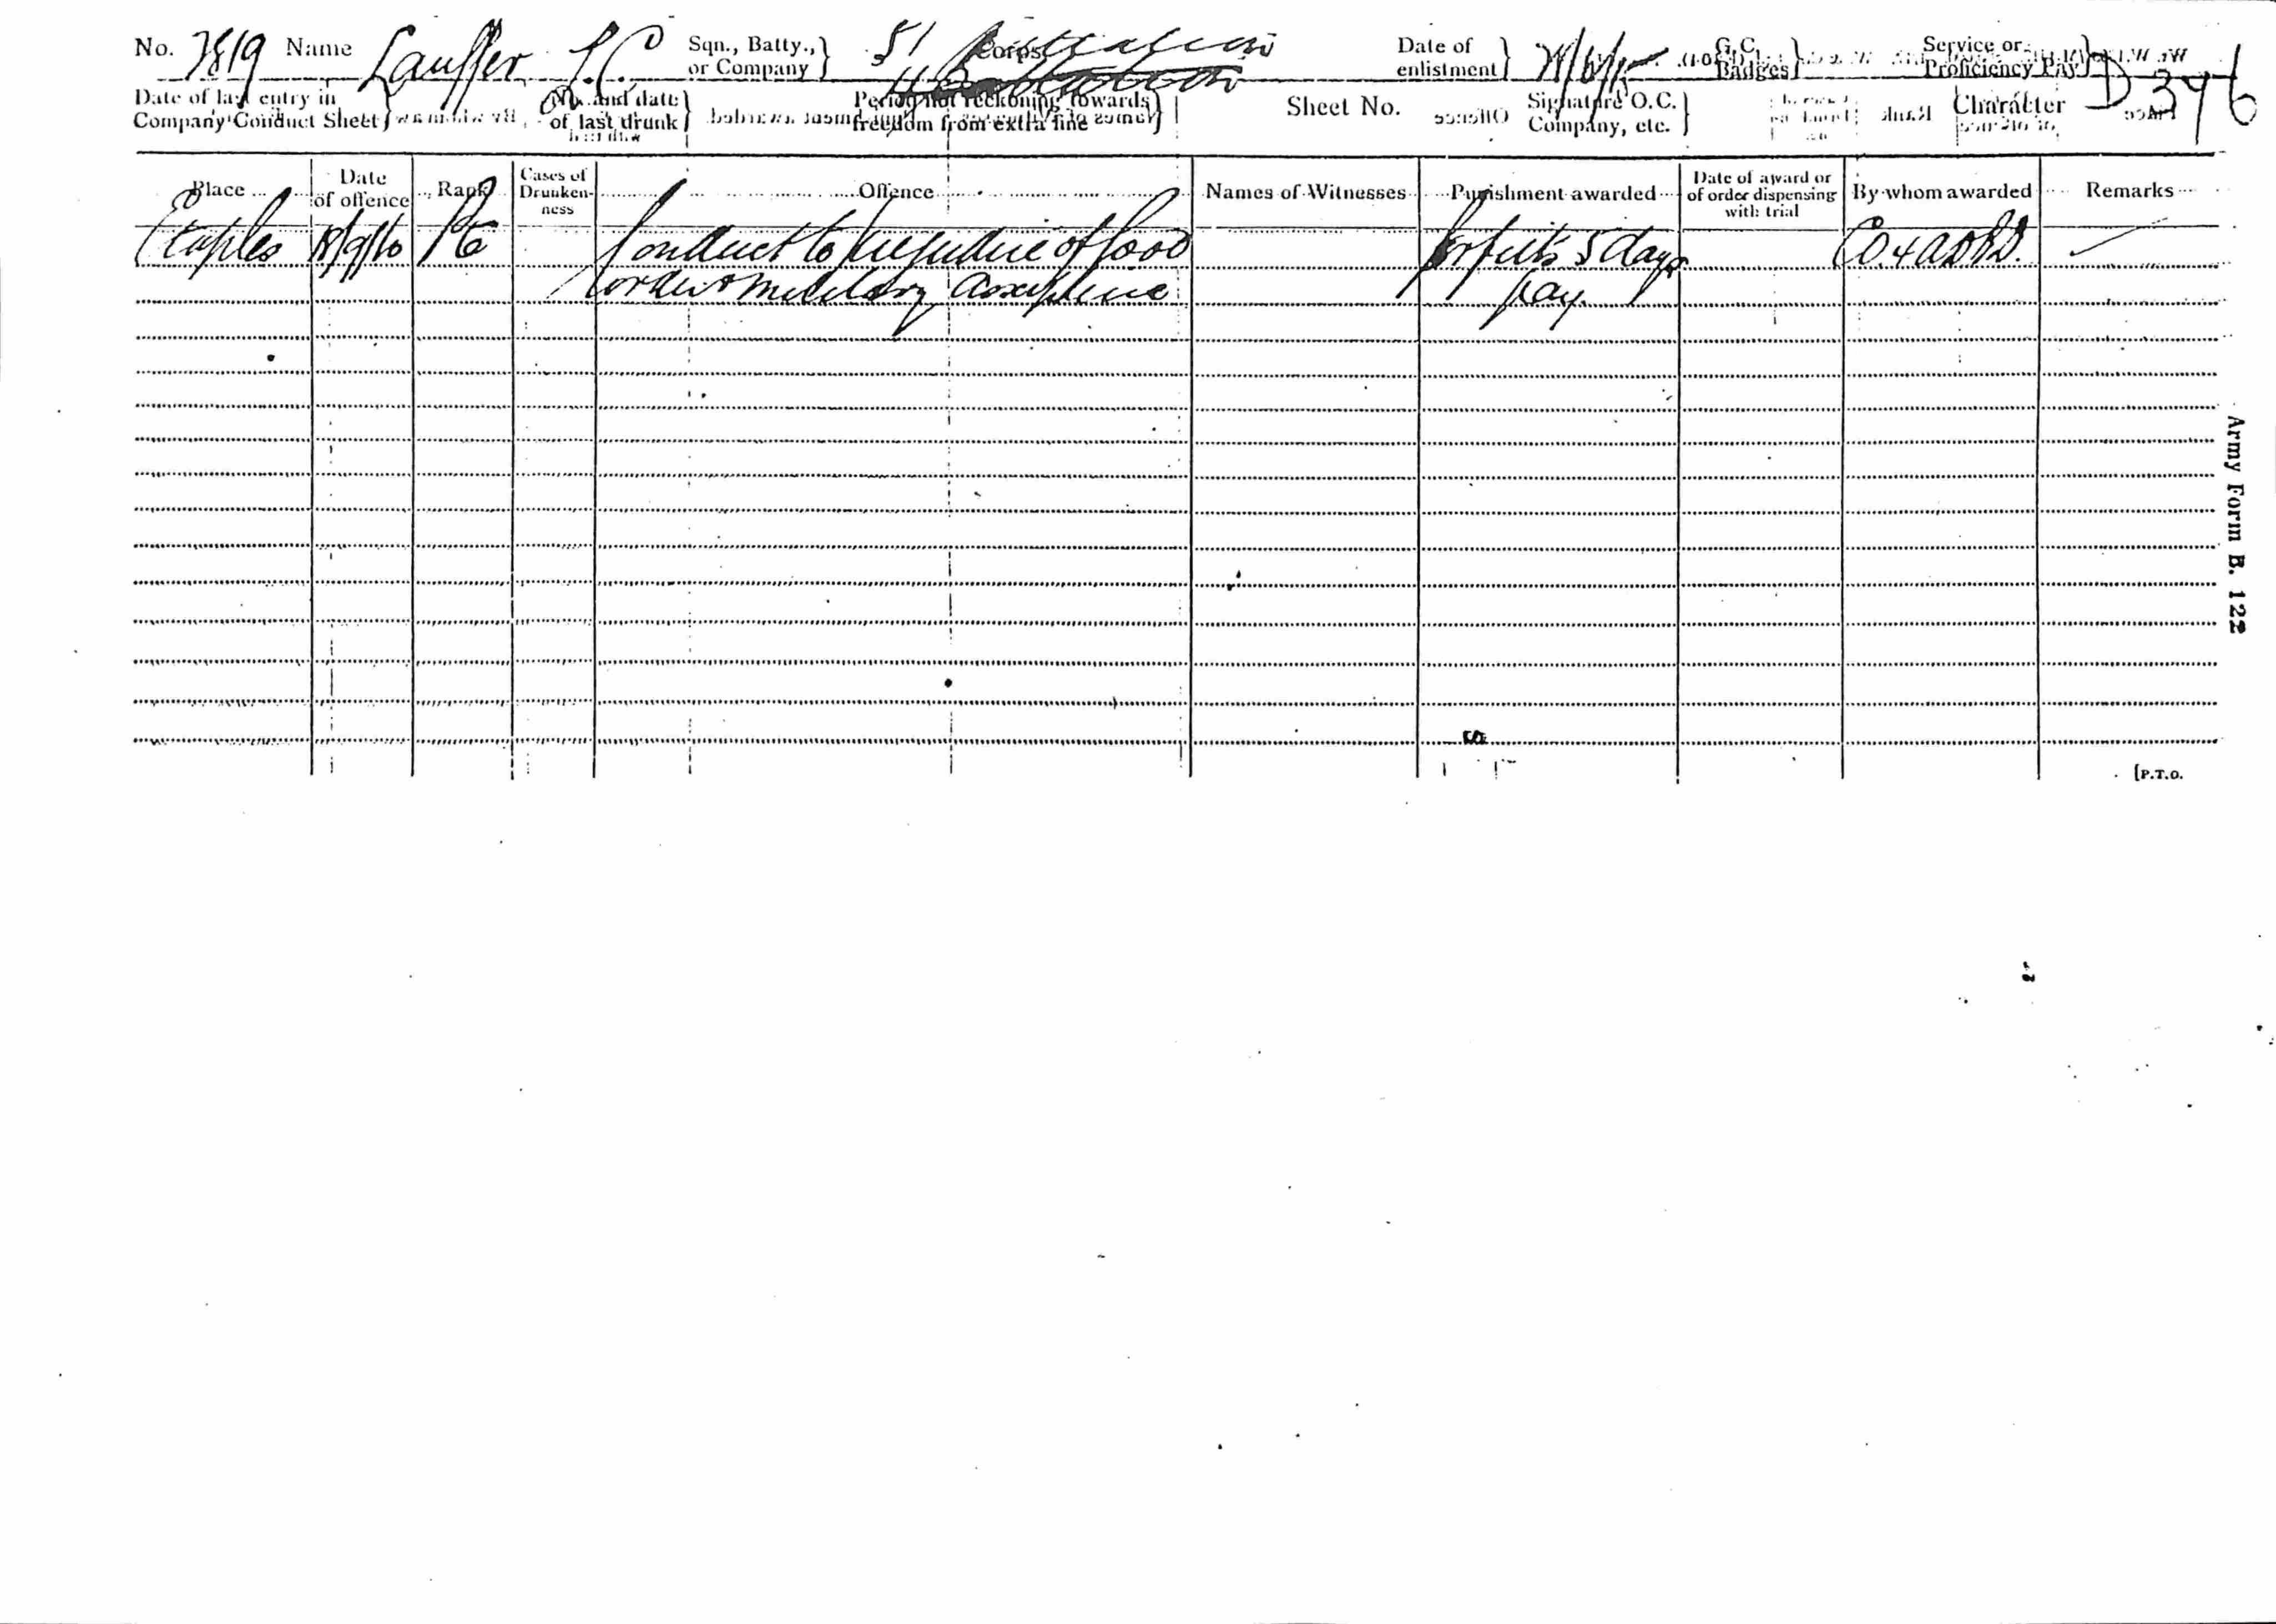 No. 7819 Name Lauffer L.C. Sqn., Batty., or Company } 51 Battalion Corps Date of enlistment } G.C. Badges } Service or Proficiency Pay } D 346
Date of last entry in Company Conduct Sheet } No. and date of last drunk } Period not reckoning towards freedom from extra fine } Sheet No. Signature O.C. Company, etc. } Character
Place Date of offence Rank Cases of Drunkenness Offence Names of Witnesses Punishment awarded Date of award or of order dispensing with trial By whom awarded Remarks
Etaples Pte Conduct to prejudice of good forfeits 5 days
order & military discipline pay.
Army Form B. 122
[P.T.O.